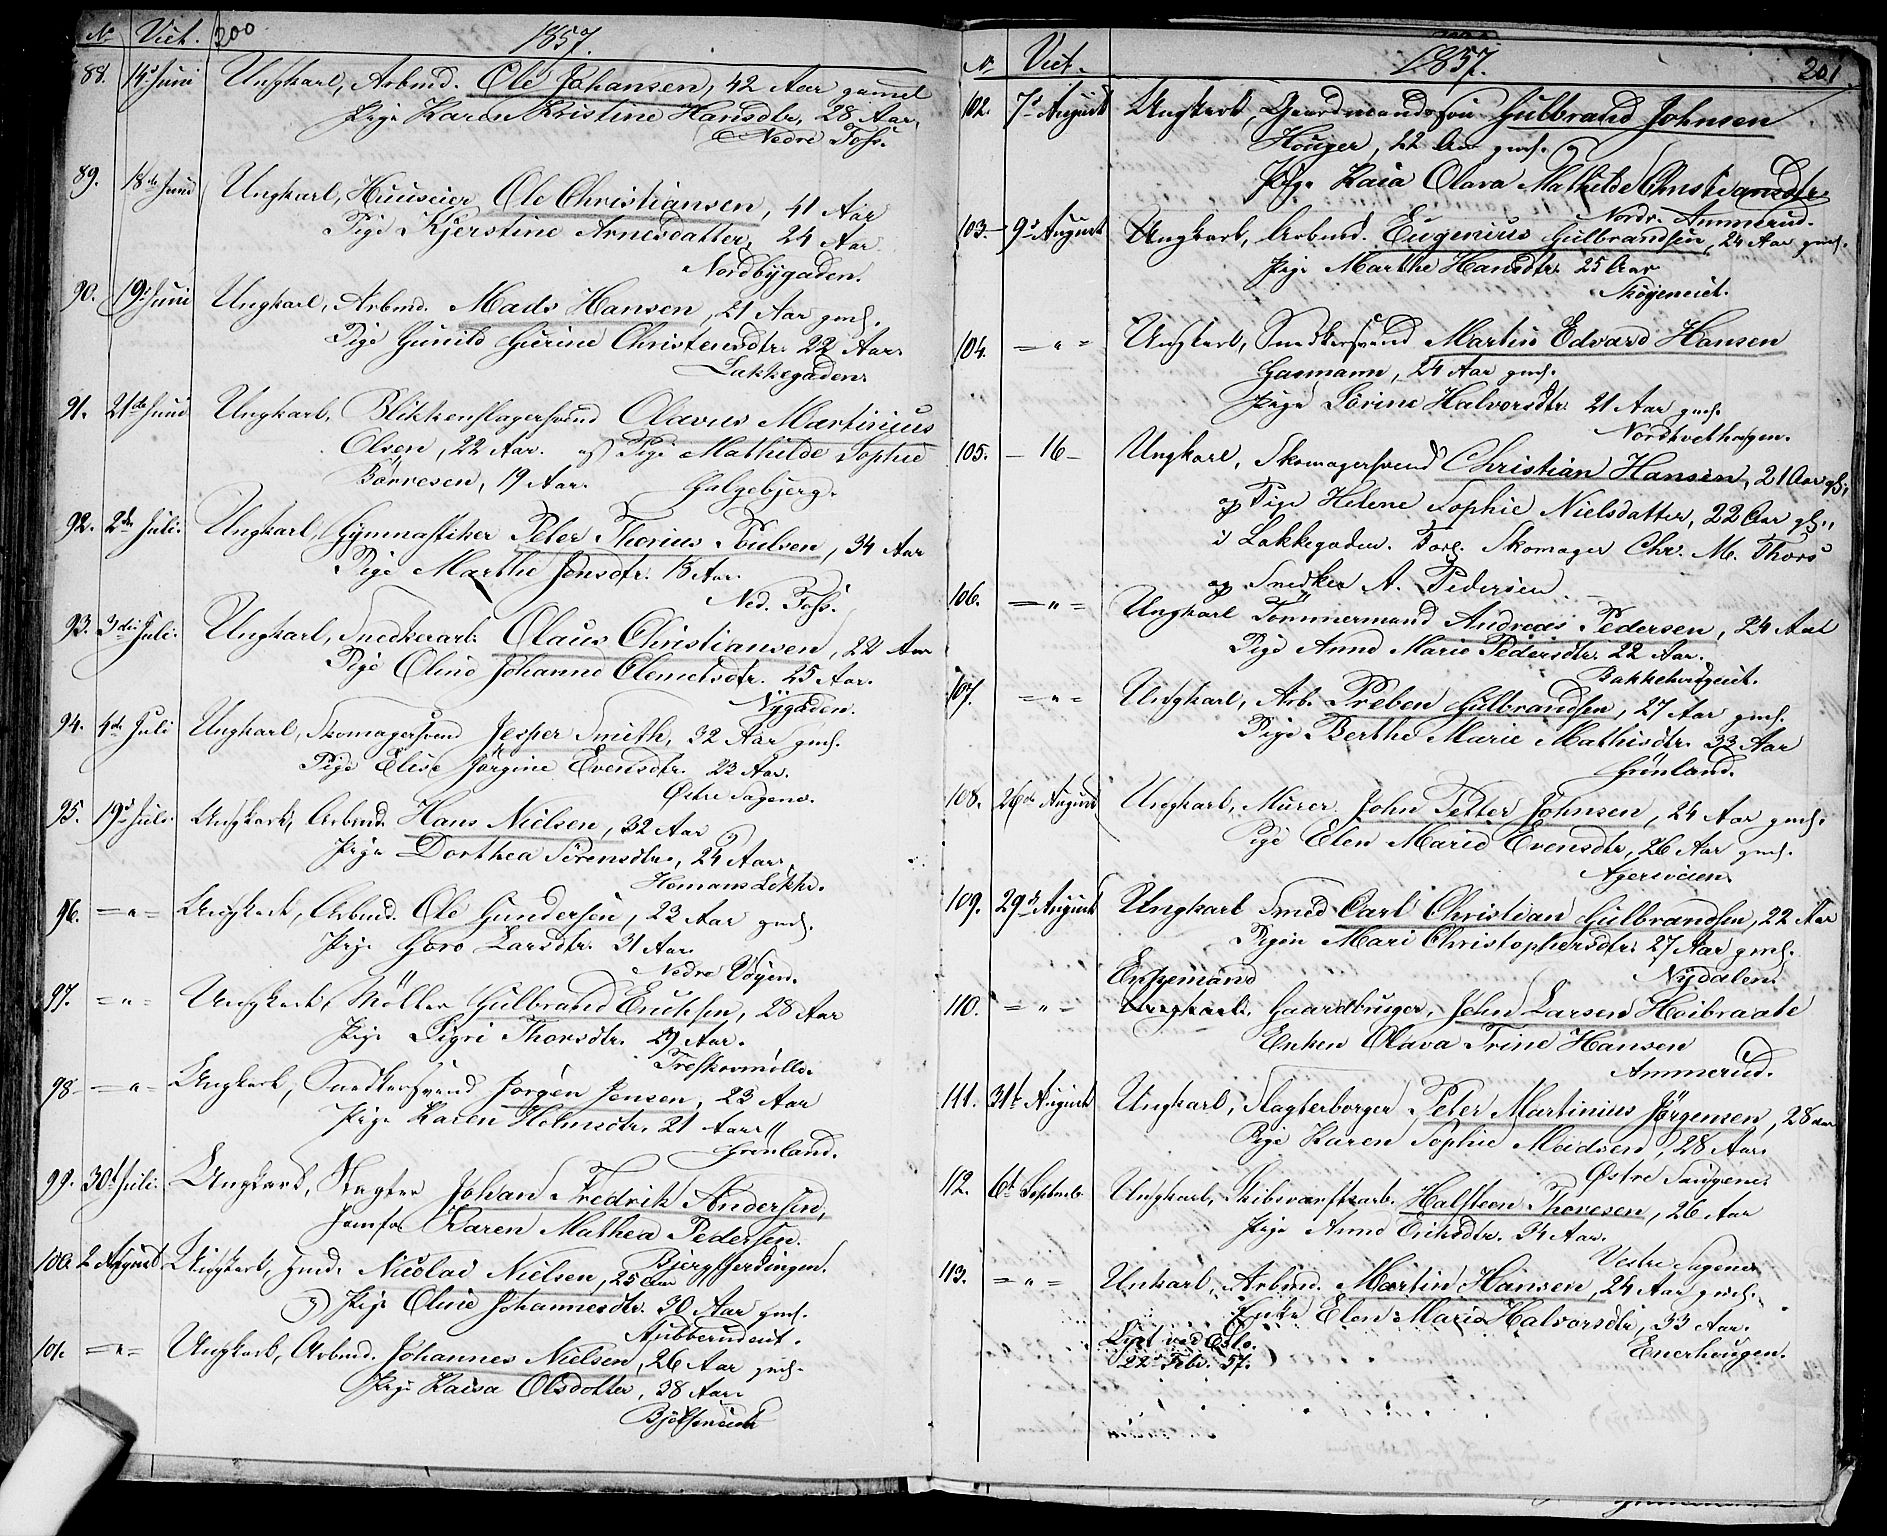 No Viet. 200 1857.
88. 14d Juni Ungkarl, Arbmd. Ole Johansen, 42 Aar gammel
Pige Karen Kristine Hansdtr. 28 Aar,
Nedre Foss.
89. 18de Juni Ungkarl, Huuseier Ole Christiansen, 41 Aar
Pige Kjerstine Arnesdatter, 24 Aar
Nordbygaden.
90. 19d Juni Ungkarl, Arbmd. Mads Hansen, 21 Aar gml.
Pige Gunild Gurine Christensdtr. 22 Aar.
Lakkegaden.
91. 21de Juni Ungkarl, Blikkenslagersvend Olavus Martinius
Olsen, 22 Aar. og Pige Mathilde Sophie
Börresen, 19 Aar. Galgebjerg.
92. 2den Juli. Ungkarl, Gymnastiker Peter Thorius Poulsen, 34 Aar
Pige Marthe Jensdtr. Aar.
Ned. Foss.
93. 3die Juli. Ungkarl, Snedkerarb. Olaus Christiansen, 22 Aar
Pige Oline Johanne Clemetsdtr. 25 Aar.
Nÿgaden.
94. 4de Juli Ungkarl, Skomagersvend Jesper Smith, 32 Aar gml.
Pige Elise Jörgine Evensdtr. 23 Aar.
Østre Sagene.
95. 19d Juli. Ungkarl, Arbmd. Hans Nielsen, 32 Aar
Pige Dorthea Sörensdtr., 24 Aar.
Homans Løkke.
96. = " = Ungkarl, Arbmd. Ole Gundersen, 23 Aar gml.
Pige Goro Larsdtr. 31 Aar.
Nedre Vöyen.
97. = " = Ungkarl, Möller Gulbrand Erichsen, 28 Aar
Pige Sigri Thorsdtr. 29 Aar.
98. = " = Ungkarl, Snedkersvend Jörgen Jensen, 23 Aar
Pige Karen Holmsdtr. 21 Aar "
Grönland.
99. 30t Juli. Ungkarl, Slagter Johan Fredrik Andersen,
Jomfr Karen Mathea Pedersen.
Bjerggjerdingen.
100. 2 August Ungkarl, Smed. Nicolai Nielsen, 25 Aar
Pige Oline Johannesdtr. 30 Aar gml.
Stubberudeiet.
101. = " = Ungkarl, Arbmd. Johannes Nielsen, 26 Aar gml.
Pige Kaisa Olsdotter, 38 Aar.
N. Viet. 1857. 201.
102. 7d August Ungkarl, Gaardmandssön Gulbrand Johnsen
Houger, 22 Aar gml.
Pige Kaia Olava Mathilde Christiansdtr.
Nordr. Ammerud.
103. 9d August Ungkarl, Arbmd. Eugenius Gulbrandsen, 24 Aar gml.
Pige Marthe Hansdtr. 25 Aar
Skøyeneiet.
104. = " = Ungkarl, Snedkersvend Martin Edvard Hansen
Gasmann, 24 Aar gml.
Pige Sörine Halvorsdtr. 21 Aar gml.
Nordtvethagen.
105. – 16 – Ungkarl, Skomagersvend Christian Hansen, 21 Aar gl.,
og Pige Helene Sophie Nielsdatter, 22 Aar gl.,
i Lakkegaden. Forl. Skomager Chr. M. Thors
og Snedker A. Pedersen.
106. = " = Ungkarl Tömmermand Andreas Pedersen, 24 Aar
Pige Anne Marie Pedersdtr. 22 Aar.
107. = " = Ungkarl, Arb. Preben Gulbrandsen, 27 Aar gml.
Pige Berthe Marie Mathisdtr. 33 Aar
Grønland.
108. 26de August Ungkarl, Murer John Petter Johnsen, 24 Aar gml.
Pige Elen Marie Evensdtr, 26 Aar gml.
Agersveien.
109. 29d August Ungkarl Smed Carl Christian Gulbrandsen, 22 Aar
Pigen Mari Christophersdtr. 27 Aar gml.
Nydalen.
Enkemand
110. = " = Ungkarl, Gaardbruger, John Larsen Høibraate
Enken Olava Trine Hansen
Ammerud.
111. 31te August Ungkarl, Slagterborger Peter Martinius Jørgensen, 28 aar
Pige Karen Sophie Madsen, 28 Aar.
Østre Saugene.
112. 6te Septembr Ungkarl, Skibsværftsarb. Halsteen Thoresen, 26 Aar
Pige Anne Eriksdtr. 34 Aar.
Vestre Sagene
113. = " = Unkarl, Arbmd. Martin Hansen, 24 Aar gml.
Enke Elen Marie Halvorsdtr, 33 Aar.
Enerhougen.
Lyst ved Oslo.
22 Febr. 57.